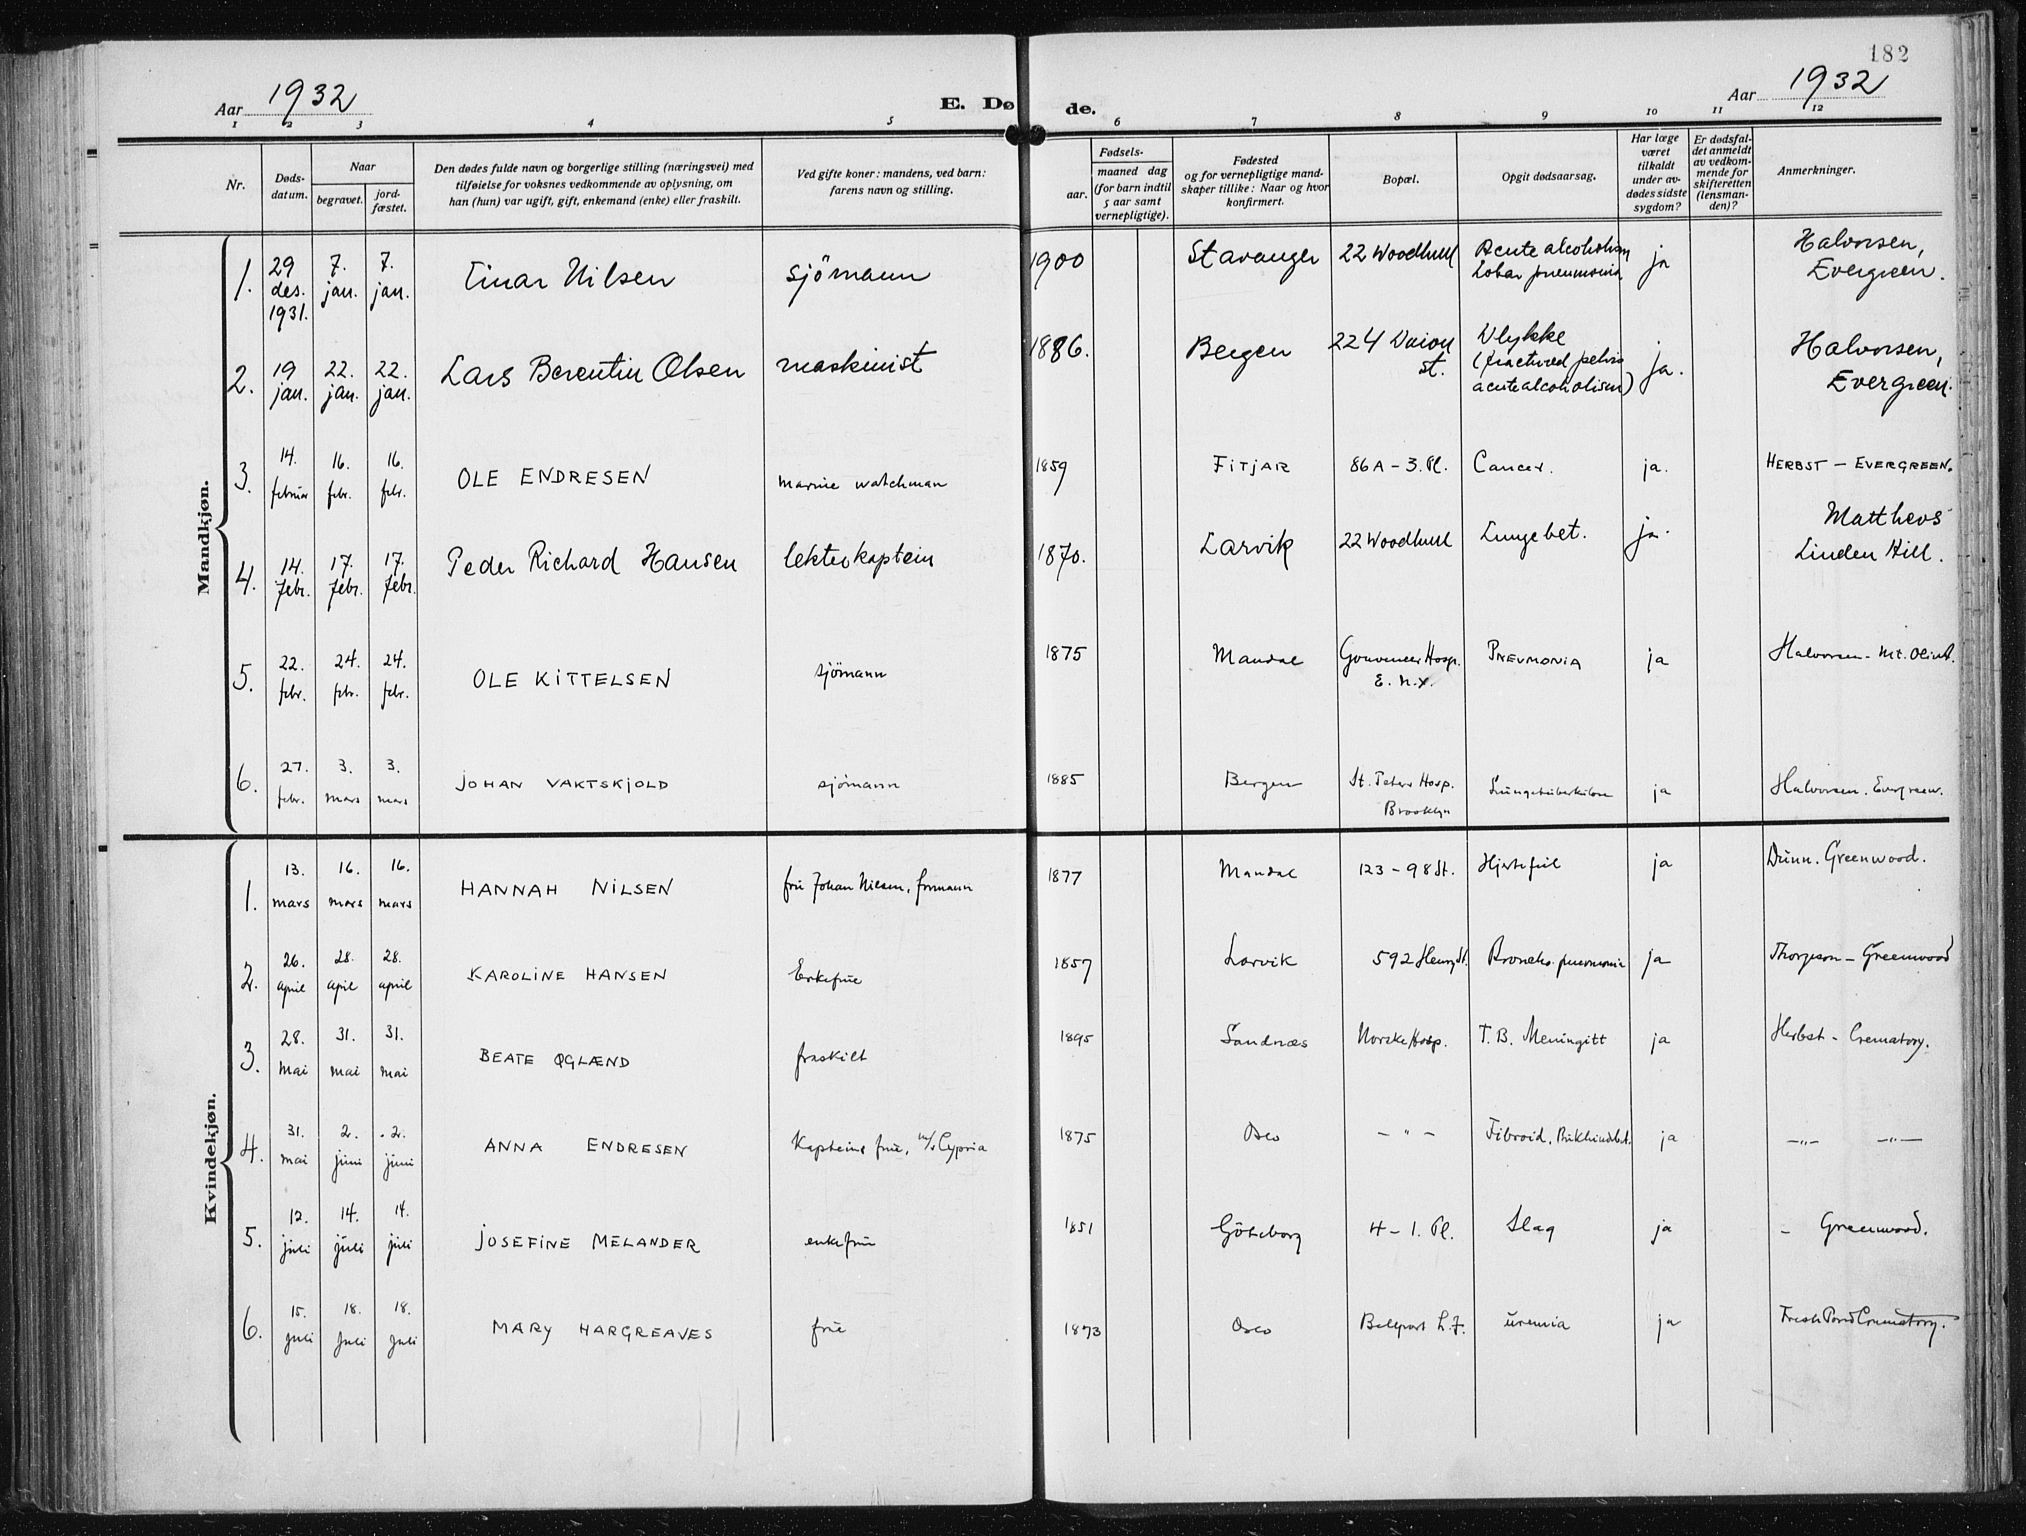 182
Aar 1932
E. Dø de.
Aar 1932
1 2 3 4 5 6 7 8 9 10 11 12
Nr.
Døds-
datum.
Naar
begravet.
jord-
fæstet.
Den dødes fulde navn og borgerlige stilling (næringsvei) med
tilføielse for voksnes vedkommende av oplysning, om
han (hun) var ugift, gift, enkemand (enke) eller fraskilt.
Ved gifte koner: mandens, ved barn:
farens navn og stilling.
Fødsels-
aar.
maaned dag
(for barn indtil
5 aar samt
vernepligtige).
Fødested
og for vernepligtige mand-
skaper tillike: Naar og hvor
konfirmert.
Bopæl.
Opgit dødsaarsag.
Har læge
været
tilkaldt
under av-
dødes sidste
sygdom?
Er dødsfal-
det anmeldt
av vedkom-
mende for
skifteretten
(lensman-
den)?
Anmerkninger.
Mandkjøn.
1. 29 des. 1931. 7. jan. 7. jan. Einar Nilsen sjömann 1900 Stavanger 22 Woodhull Acute alcoholism Lobar pneumonia ja Halvorsen, Evergreen.
2. 19 jan. 22. jan. 22. jan. Lars Berentin Olsen maskinist 1886. Bergen 224 Union st. Ulykke (fractured pelvis acute alcoholism) ja. Halvorsen, Evergreen.
3. 14. februar 16. febr. 16. febr. OLE ENDRESEN marine watchman 1859 FITJAR 86A – 3. Pl. Cancer. ja. HERBST – EVERGREEN.
4. 14. febr. 17. febr. 17. febr. Peder Richard Hansen lekterkaptein 1870. Larvik 22 Woodhull Lungebet. ja. Matthews Linden Hill.
5. 22. febr. 24. febr. 24. febr. OLE KITTELSEN sjömann 1875 Mandal Gouveneer Hosp. PNEVMONIA ja Halvorsen – Mt. Olivet.
6. 27. febr. 3. mars 3. mars JOHAN VAKTSKJOLD sjömann 1885 Bergen St. Peters Hosp. Brooklyn Lungetuberkulose ja Halvorsen. Evergreen.
Kvindekjøn.
1. 13. mars 16. mars 16. mars HANNAH NILSEN fru Johan Nilsen, formann 1877 Mandal 123 – 98 St. Hjertefeil ja Dunn. Greenwood.
2. 26. april 28. april 28. april KAROLINE HANSEN Enkefrue 1857 Larvik 592 Henry St. Broncho. pneumonia ja Thorgeson – Greenwood
3. 28. mai 31. mai 31. mai BEATE OGLÆND fraskilt 1895 Sandnæs Norske Hosp. T.B. Meningitt ja Herbst – Crematory.
4. 31. mai 2. juni 2. juni ANNA ENDRESEN Kapteins frue, m/s Cypria 1875 Oslo – " – Fibroid, Bukhindebet. ja –"– –"–
5. 12. juli 14. juli 14. juli JOSEFINE MELANDER enkefrue 1851 Göteborg 4 – 1. Pl. Slag ja – Greenwood.
6. 15. juli 18. juli 18. juli MARY HARGREAVES frue 1873 Oslo Bellport L.I. uremia ja Fresh Pond Crematory.